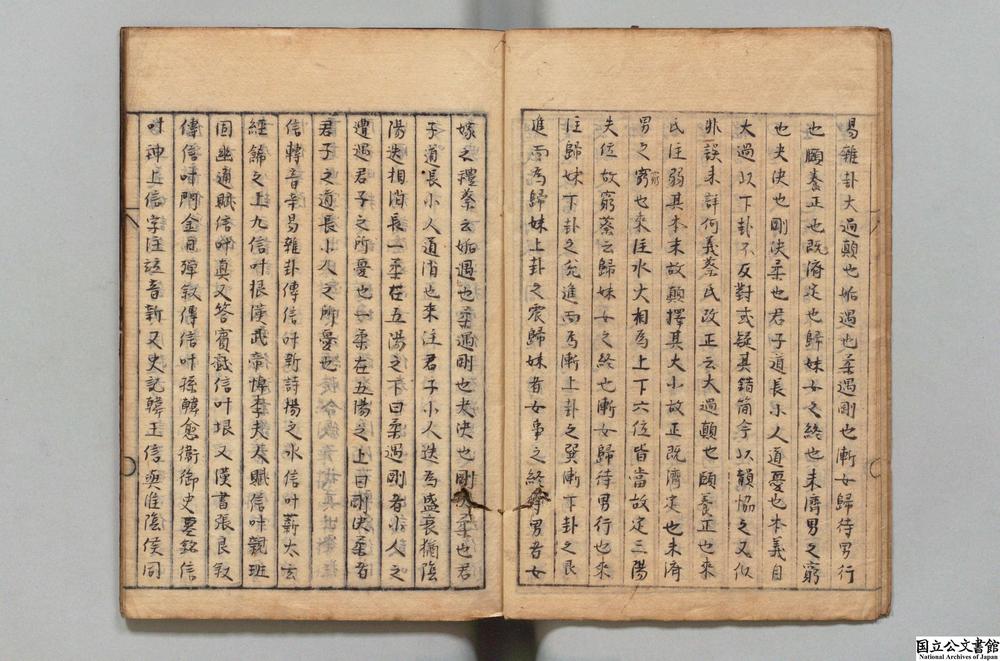 易雜卦大過顛也姤遇也柔遇剛也漸女歸待男行
也頤養正也既濟定也歸妹女之終也未濟男之窮
也夬決也剛決柔也君子道長小人道憂也本義自
大過以下卦不反對或疑其錯簡今以韻協之又似
非誤未詳何義蔡氏改正云大過顛也頤養正也來
氏注弱其本末故顛擇其大小故正既濟定也未濟
男之窮也來注水火相為上下六位皆當故定三陽
失位故窮蔡云歸妹女之終也漸女歸待男行也來
注歸妹下卦之兌進而為漸上卦之巽漸下卦之艮
進而為歸妹上卦之震歸妹者女事之終待男者女
嫁之禮蔡云姤遇也柔遇剛也夬決也剛決柔也君
子道長小人道消也來注君子小人迭為盛衰猶陰
陽迭相消長一柔在五陽之下曰柔遇剛者小人之
遭遇君子之所憂也一柔在五陽之上曰剛決柔者
君子之道長小人之所憂也
信轉音辛易雜卦傳信叶新詩揚之水信叶薪太玄
經飾之上九信叶根漢武帝悼李夫人賦信叶親班
固幽通賦信叶真又答賓戲信叶垠又漢書張良敘
傳信叶門金日磾敘傳信叶孫韓愈衢御史墓銘信
叶神上信字注竝音新又史記韓王信與淮陰侯同
国立公文書館
National Archives of Japan